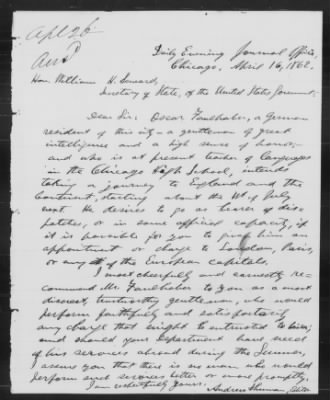 Apl 26
Ansd
Daily Evening Journal Office,
Chicago, April 16, 1862.
Hon. William H. Seward,
Secretary of State, of the United States Government.
Dear Sir: Oscar Faulhaber, a German
resident of this city—a gentleman of great
intelligence and a high sense of honor,—
and who is at present teacher of languages
in the Chicago High School, intends
taking a journey to England and the
Continent, starting about the 1st of July
next. He desires to go as bearer of des-
patches, or in some official capacity, if
it is possible for you to give him an
appointment or charge to London, Paris,
or any of the European capitals.
I most cheerfully and earnestly re-
commend Mr. Faulhaber to you as a most
discreet, trustworthy gentleman, who would
perform faithfully and satisfactorily
any charge that might be entrusted to him;
and should your Department have need
of his services abroad during the Summer,
I assure you that there is no man who would
perform such services better or more promptly.
I am respectfully yours,
Andrew Shuman, Editor